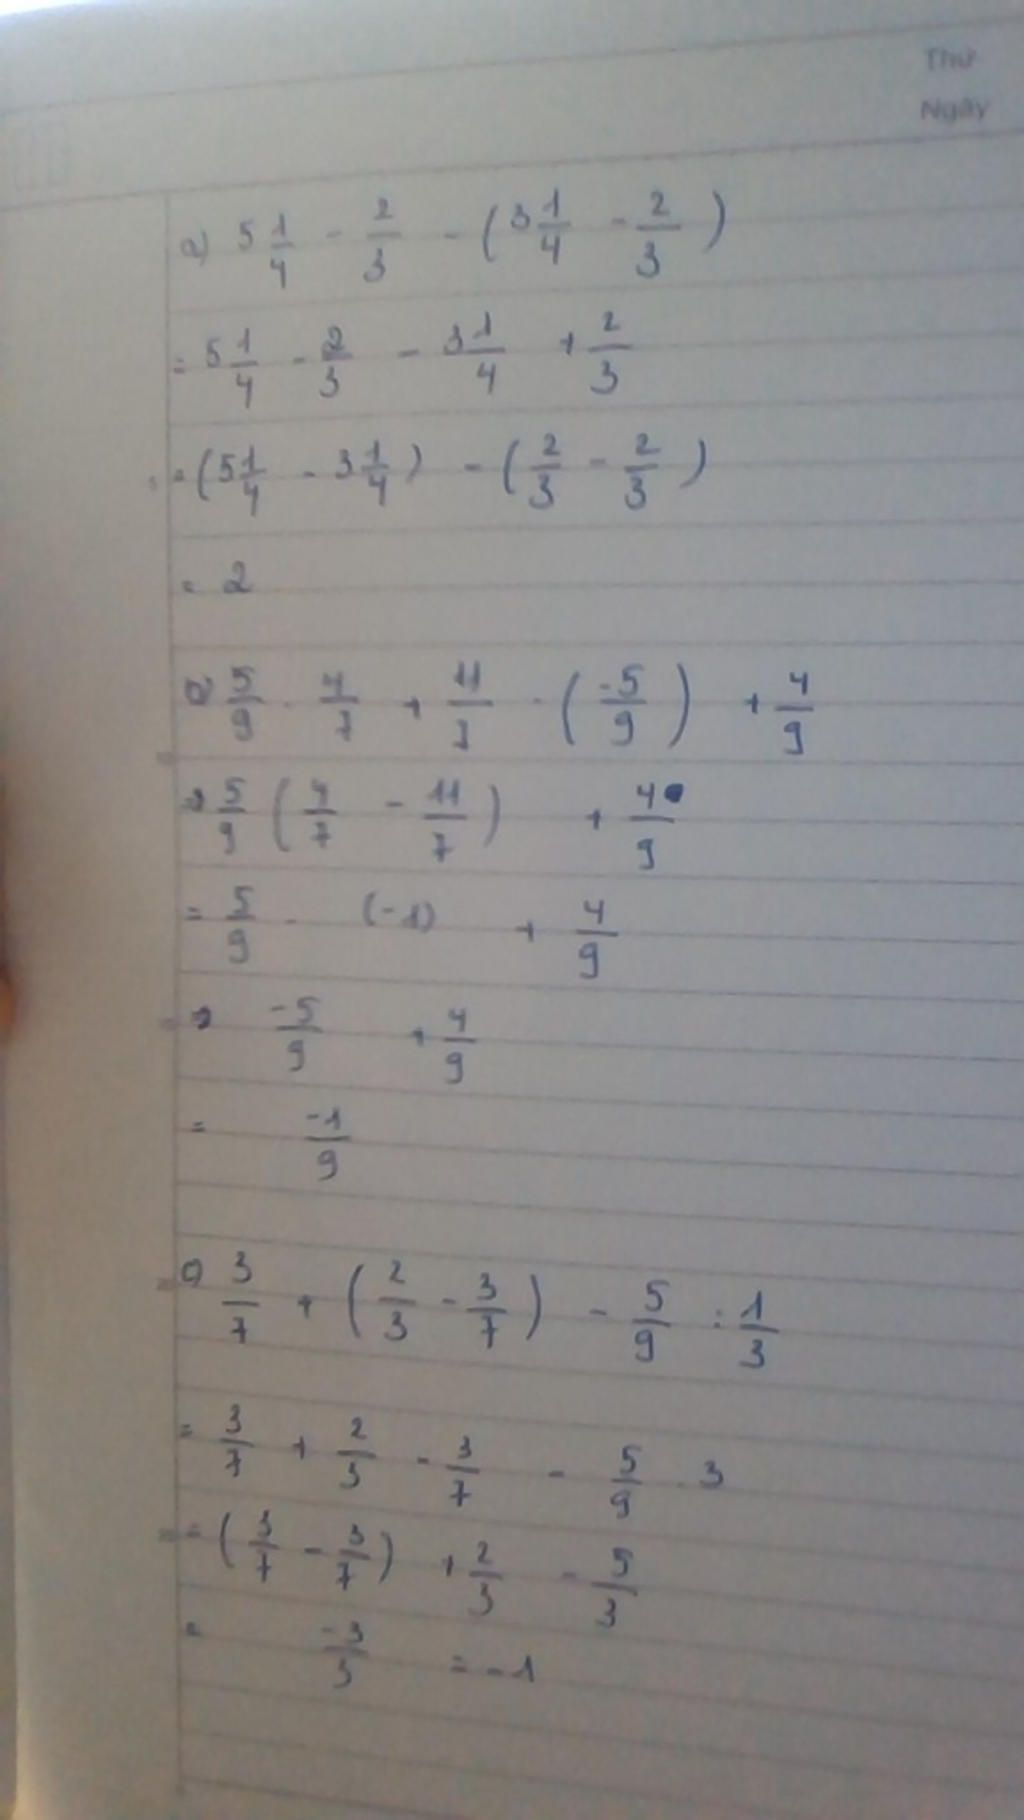 Thứ
Ngày
a) 5 1/4 - 2/3 - (3 1/4 - 2/3)
= 5 1/4 - 2/3 - 3 1/4 + 2/3
= (5 1/4 - 3 1/4) - (2/3 - 2/3)
= 2
5/9 . 4/7 + 11/7 . (-5/9) + 4/9
= 5/9 (4/7 - 11/7) + 4/9
= 5/9 . (-1) + 4/9
= -5/9 + 4/9
= -1/9
c) 3/7 + (2/3 - 3/7) - 5/9 : 1/3
= 3/7 + 2/3 - 3/7 - 5/9 . 3
= (3/7 - 3/7) + 2/3 - 5/3
= -3/3 = -1